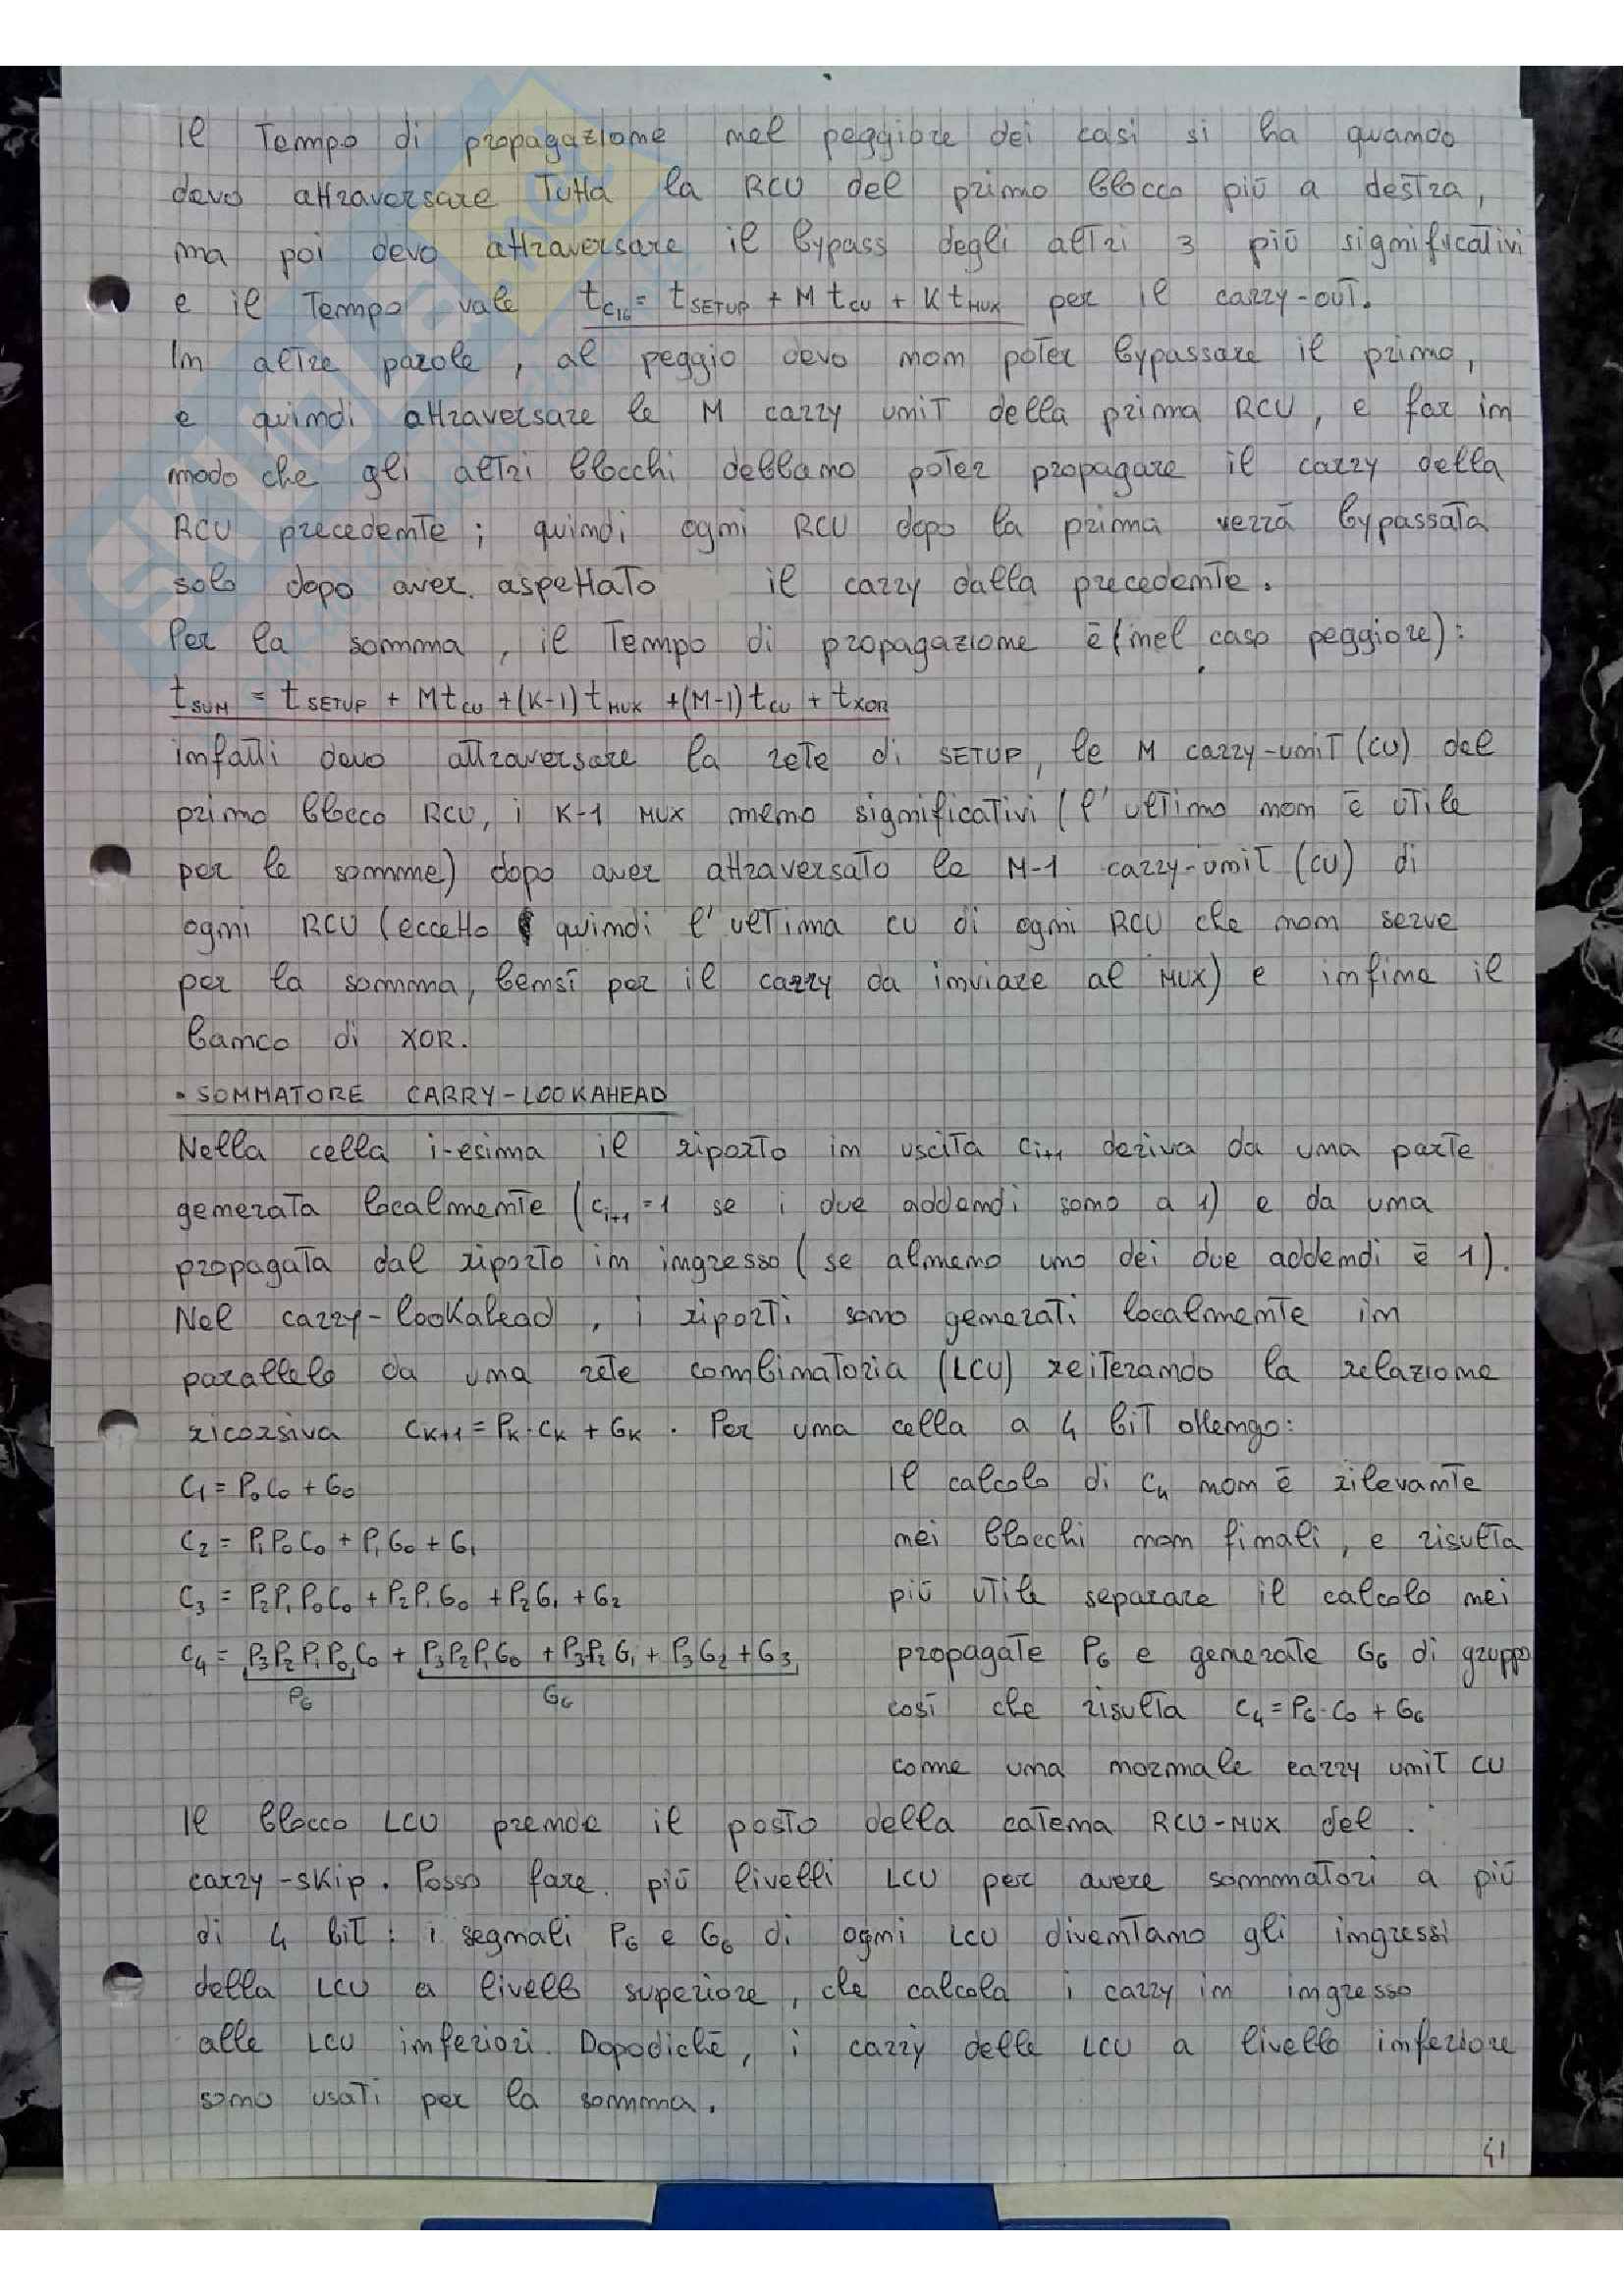 Il Tempo di propagazione nel peggiore dei casi si ha quando
devo attraversare Tutta la RCU del primo blocco più a destra,
ma poi devo attraversare il bypass degli altri 3 più significativi
e il Tempo vale t_C16 = t_SETUP + M t_CU + K t_MUX per il carry-out.
In altre parole, al peggio devo non poter bypassare il primo,
e quindi attraversare le M carry unit della prima RCU, e far in
modo che gli altri blocchi debbano poter propagare il carry della
RCU precedente; quindi ogni RCU dopo la prima verrà bypassata
solo dopo aver aspettato il carry dalla precedente.
Per la somma, il Tempo di propagazione è (nel caso peggiore):
t_SUM = t_SETUP + M t_CU + (K-1) t_MUX + (M-1) t_CU + t_XOR
infatti devo attraversare la rete di SETUP, le M carry-unit (CU) del
primo blocco RCU, i K-1 MUX meno significativi (l'ultimo non è utile
per le somme) dopo aver attraversato le M-1 carry-unit (CU) di
ogni RCU (eccetto quindi l'ultima CU di ogni RCU che non serve
per la somma, bensì per il carry da inviare al MUX) e infine il
banco di XOR.
• SOMMATORE CARRY-LOOKAHEAD
Nella cella i-esima il riporto in uscita C_i+1 deriva da una parte
generata localmente (C_i+1 = 1 se i due addendi sono a 1) e da una
propagata dal riporto in ingresso (se almeno uno dei due addendi è 1).
Nel carry-lookahead, i riporti sono generati localmente in
parallelo da una rete combinatoria (LCU) reiterando la relazione
ricorsiva C_K+1 = P_K · C_K + G_K. Per una cella a 4 bit ottengo:
C1 = P0C0 + G0
C2 = P1P0C0 + P1G0 + G1
C3 = P2P1P0C0 + P2P1G0 + P2G1 + G2
C4 = P3P2P1P0C0 + P3P2P1G0 + P3P2G1 + P3G2 + G3
P_G G_G
Il calcolo di C4 non è rilevante
nei blocchi non finali, e risulta
più utile separare il calcolo nei
propagate P_G e generate G_G di gruppo
così che risulta C4 = P_G · C0 + G_G
come una normale carry unit CU
Il blocco LCU prende il posto della catena RCU-MUX del
carry-skip. Posso fare più livelli LCU per avere sommatori a più
di 4 bit: i segnali P_G e G_G di ogni LCU diventano gli ingressi
della LCU a livello superiore, che calcola i carry in ingresso
alle LCU inferiori. Dopodiché, i carry delle LCU a livello inferiore
sono usati per la somma.
41